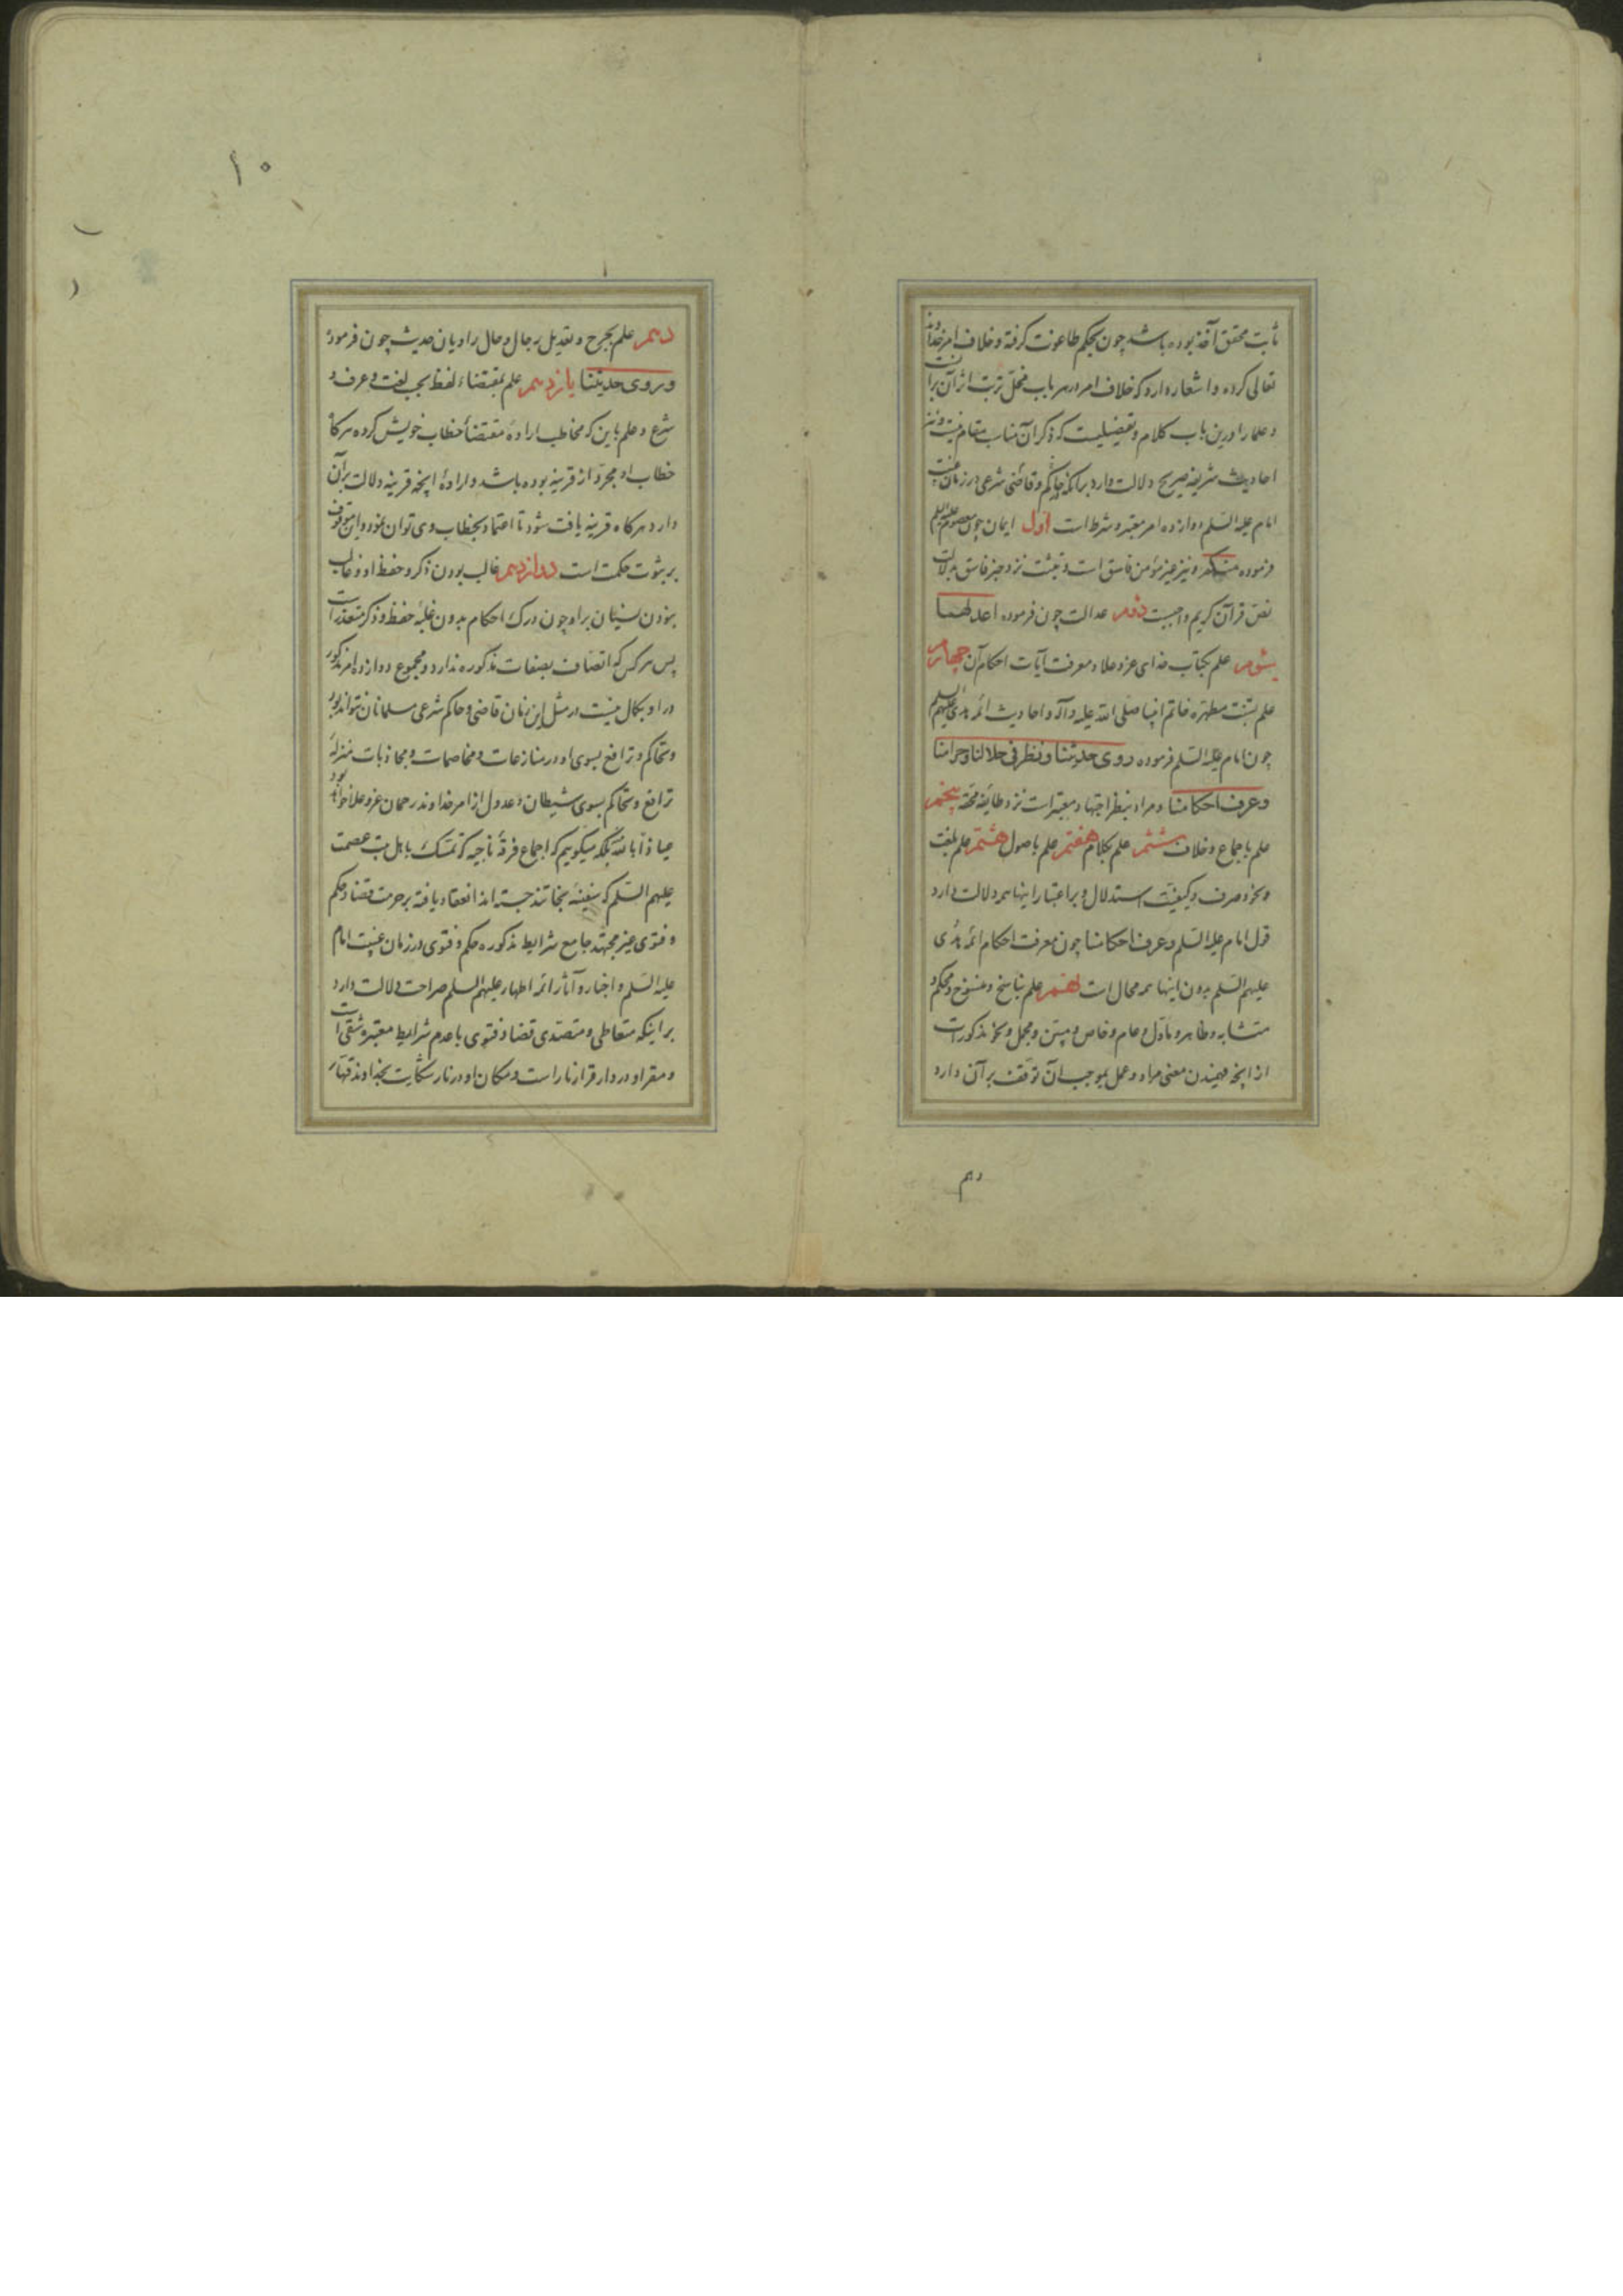 ثابت محقق آخذ بوده باشد چون بحکم طاغوت گرفته و خلاف امر خداوند
تعالی کرده و اشعار دارد که خلاف امر در هر باب مخل ترتب اثر آن بر آنست
و علما را درین باب کلام و تفصیلیست که ذکر آن مناسب مقام نیست و نیز
احادیث شریفه صریح دلالت دارد برانکه حاکم و قاضی شرعی در زمان غیبت
امام علیه السلم دوازده امر معتبر و شرط است اول ایمان چون معصوم علیه السلم
فرموده منکم و نیز غیر مؤمن فاسق است و تثبت نزد خبر فاسق بدلالت
نص قرآن کریم واجبست دوم عدالت چون فرموده اعدلهما
سوم علم بکتاب خدای عز و علا و معرفت آیات احکام آن چهارم
علم بسنت مطهره خاتم انبیا صلی الله علیه و آله و احادیث ائمه هدی علیهم السلم
چون امام علیه السلم فرموده روی حدیثنا و نظر فی حلالنا و حرامنا
و عرف احکامنا و مراد بنظر اجتهاد معتبر است نزد طایفه محقه پنجم
علم باجماع و خلاف ششم علم بکلام هفتم علم باصول هشتم علم بلغت
و نحو و صرف و کیفیت استدلال و بر اعتبار اینها همه دلالت دارد
قول امام علیه السلم و عرف احکامنا چون معرفت احکام ائمه هدی
علیهم السلم بدون اینها همه محال است نهم علم بناسخ و منسوخ و محکم و
متشابه و ظاهر و مأول و عام و خاص و مبین و مجمل و نحو مذکورات
از آنچه فهمیدن معنی مراد و عمل بموجب آن توقف بر آن دارد
دهم
۱۰
دهم علم بجرح و تعدیل رجال و حال راویان حدیث چون فرموده
و روی حدیثنا یازدهم علم بمقتضاء لفظ بحسب لغت و عرف و
شرع و علم باین که مخاطب اراده مقتضأ خطاب خویش کرده هرگاه
خطاب او مجرد از قرینه بوده باشد و اراده آنچه قرینه دلالت بر آن
دارد هرگاه قرینه یافت شود تا اعتماد بخطاب وی توان نمود و این موقوف
بر ثبوت حکمت است دوازدهم غالب بودن ذکر و حفظ او و غالب
نبودن نسیان بر او چون درک احکام بدون غلبه حفظ و ذکر متعذر است
پس هر کس که اتصاف بصفات مذکوره ندارد و مجموع دوازده امر مذکور
در او بکمال نیست در مثل این زمان قاضی و حاکم شرعی مسلمانان نتواند بود
و تحاکم و ترافع بسوی او در منازعات و مخاصمات و مجاذبات بمنزلهٔ
ترافع و تحاکم بسوی شیطان و عدول از امر خداوند رحمان عز و علا خواهد بود
عیاذاً بالله بلکه میگوییم که اجماع فرقهٔ ناجیه که تمسک باهل بیت عصمت
علیهم السلم که سفینهٔ نجاتند جسته اند انعقاد یافته بر حرمت قضا و حکم
و فتوی غیر مجتهد جامع شرایط مذکوره حکم و فتوی در زمان غیبت امام
علیه السلم و اخبار و آثار ائمه اطهار علیهم السلم صراحت دلالت دارد
بر اینکه متعاطی و متصدی قضا و فتوی با عدم شرایط معتبره شقی است
و مقر او در دار قرار نار است و مکان او در نار شکایت بخداوند قهار